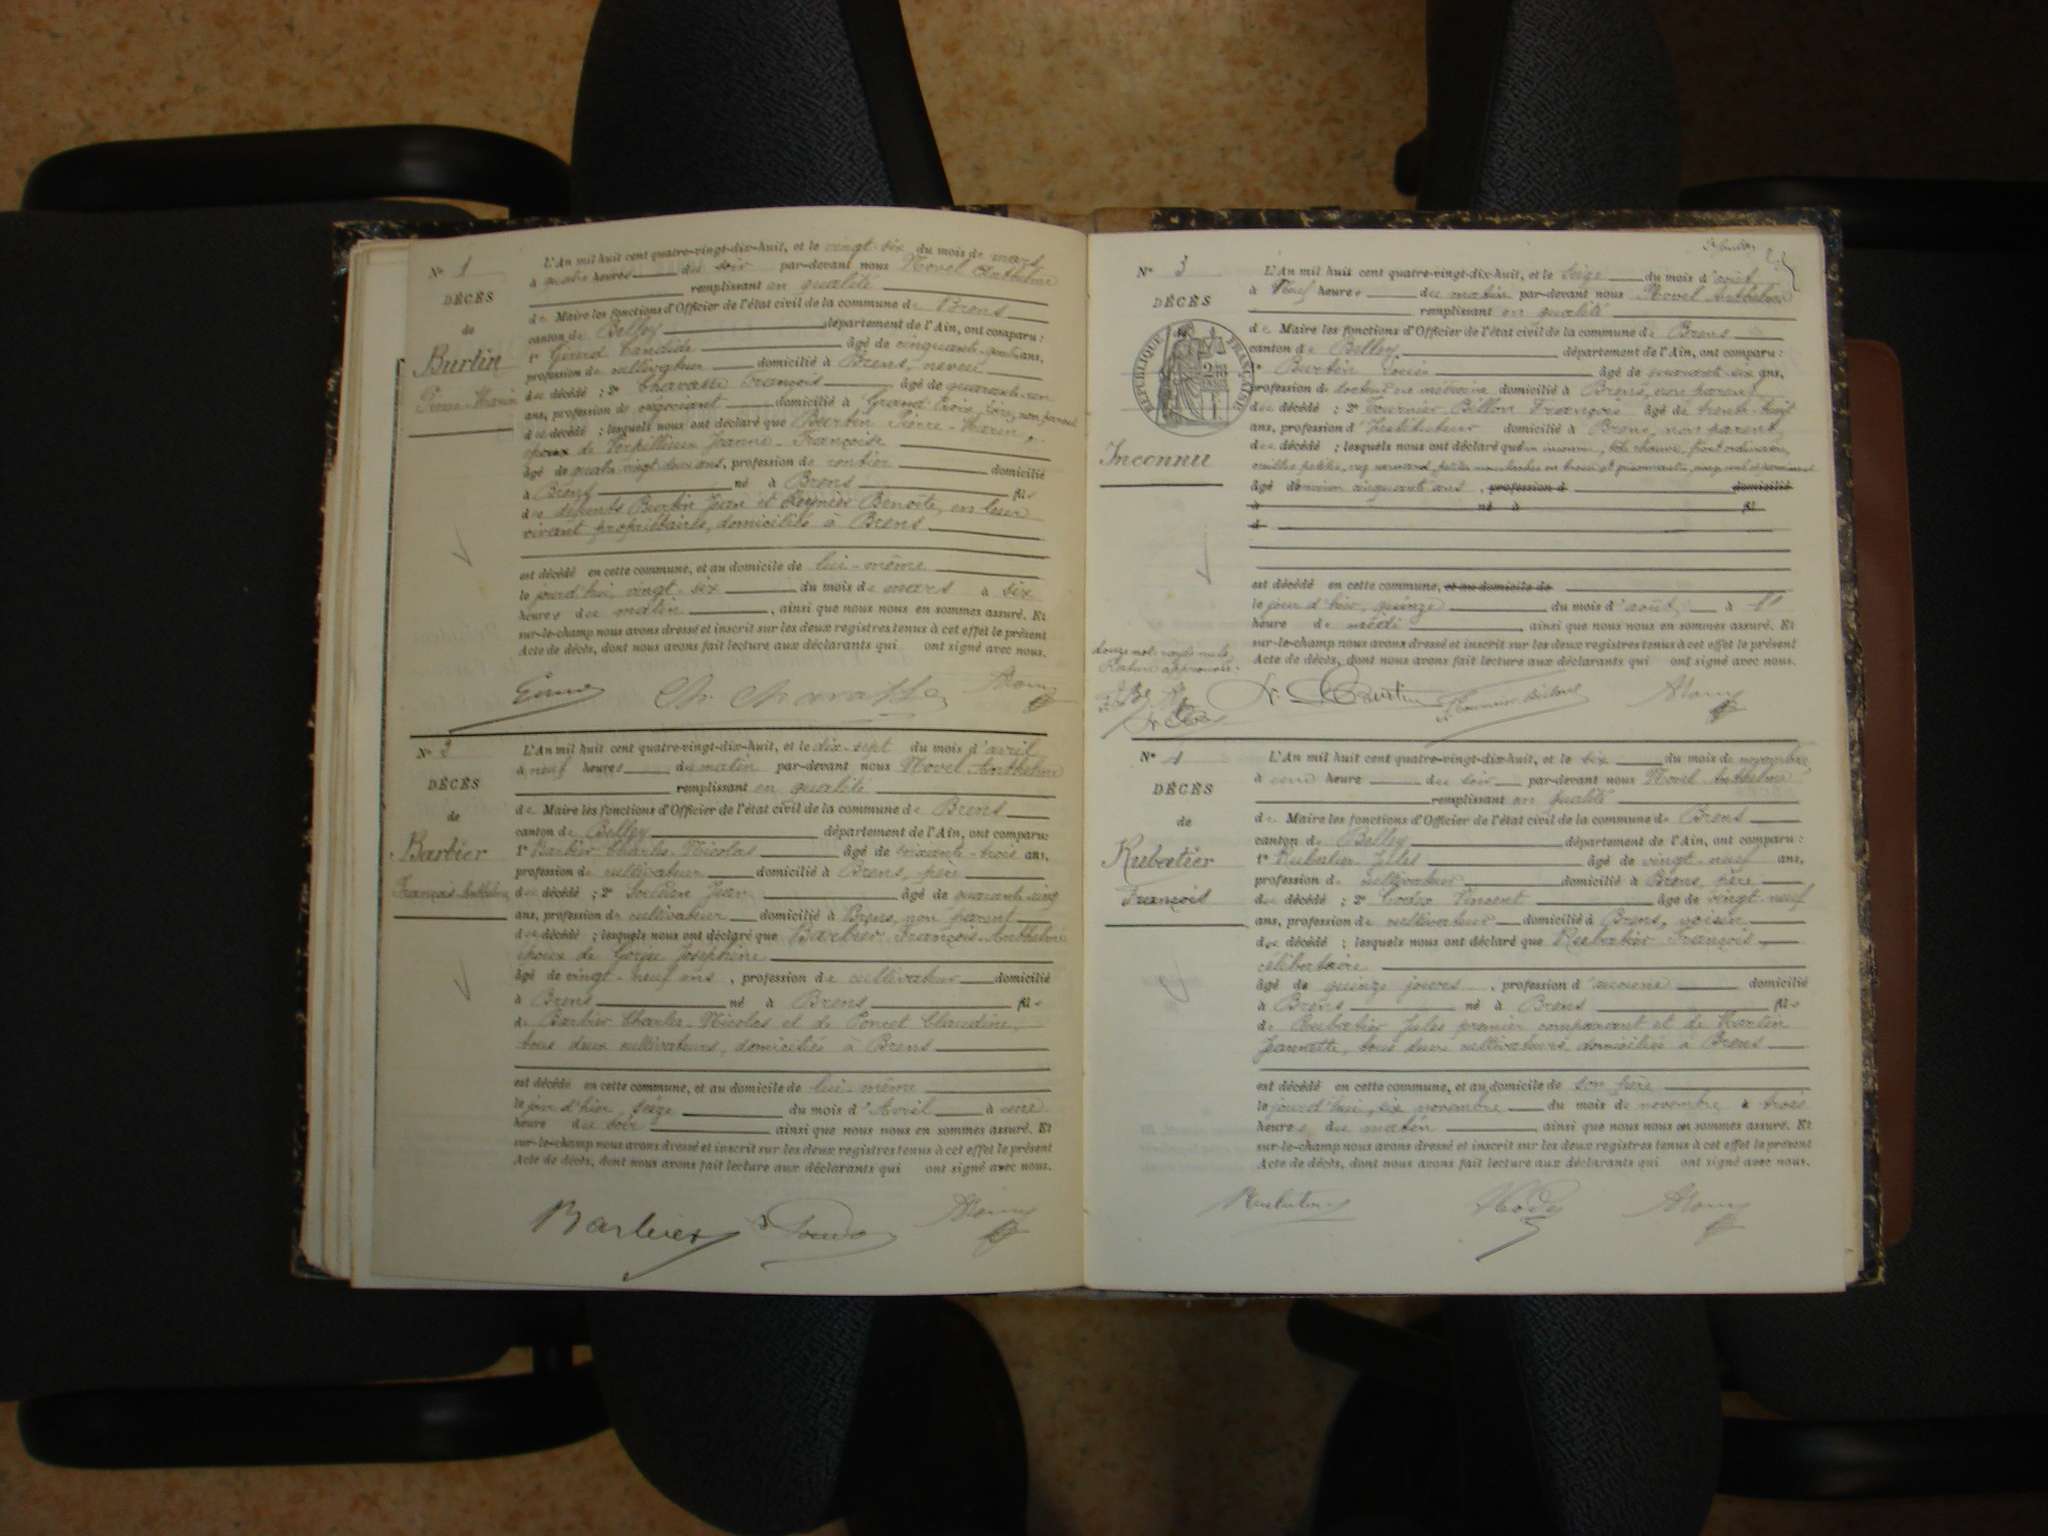 N° 1
DÉCÈS
de
Burtin
Pierre-Marin
L'An mil huit cent quatre-vingt-dix-huit, et le vingt-six du mois de mars
à quatre heures du soir par-devant nous Novel Anthelme
remplissant en qualité
de Maire les fonctions d'Officier de l'état civil de la commune de Brens
canton de Belley département de l'Ain, ont comparu :
1° Girod Candide âgé de cinquante-quatre ans,
profession de cultivateur domicilié à Brens, neveu
du décédé ; 2° Chavasse François âgé de quarante-un
ans, profession de négociant domicilié à Grand-Croix, Loire, non parent
du décédé ; lesquels nous ont déclaré que Burtin Pierre-Marin,
époux de Jeanne-Françoise
âgé de quatre-vingt-deux ans, profession de rentier domicilié
à Brens né à Brens fils
de défunts Burtin Jean et Benoîte, en leur
vivant propriétaires, domiciliés à Brens
est décédé en cette commune, et au domicile de lui-même
le jourd'hui, vingt-six du mois de mars à six
heures du matin, ainsi que nous nous en sommes assuré. Et
sur-le-champ nous avons dressé et inscrit sur les deux registres tenus à cet effet le présent
Acte de décès, dont nous avons fait lecture aux déclarants qui ont signé avec nous.
N° 2
DÉCÈS
de
Barbier
François-Anthelme
L'An mil huit cent quatre-vingt-dix-huit, et le dix-sept du mois d'avril
à neuf heures du matin par-devant nous Novel Anthelme
remplissant en qualité
de Maire les fonctions d'Officier de l'état civil de la commune de Brens
canton de Belley département de l'Ain, ont comparu :
1° Barbier Charles-Nicolas âgé de soixante-trois ans,
profession de cultivateur domicilié à Brens, père
du décédé ; 2° Jean âgé de quarante-cinq
ans, profession de cultivateur domicilié à Brens, non parent
du décédé ; lesquels nous ont déclaré que Barbier François-Anthelme
époux de Joséphine
âgé de vingt-neuf ans, profession de cultivateur domicilié
à Brens né à Brens fils
de Barbier Charles-Nicolas et de Poncet Claudine,
tous deux cultivateurs, domiciliés à Brens
est décédé en cette commune, et au domicile de lui-même
le jour d'hier, seize du mois d'Avril à une
heure du soir ainsi que nous nous en sommes assuré. Et
sur-le-champ nous avons dressé et inscrit sur les deux registres tenus à cet effet le présent
Acte de décès, dont nous avons fait lecture aux déclarants qui ont signé avec nous.
Barbier
N° 3
DÉCÈS
RÉPUBLIQUE FRANÇAISE
Inconnu
L'An mil huit cent quatre-vingt-dix-huit, et le seize du mois d'août
à neuf heures du matin par-devant nous Novel Anthelme
remplissant en qualité
de Maire les fonctions d'Officier de l'état civil de la commune de Brens
canton de Belley département de l'Ain, ont comparu :
1° Burtin Louis âgé de quarante-six ans,
profession de docteur en médecine domicilié à Brens, non parent
du décédé ; 2° Fournier-Billon François âgé de trente-huit
ans, profession d'Instituteur domicilié à Brens, non parent
du décédé ; lesquels nous ont déclaré qu'un inconnu, tête chauve, front ordinaire,
oreilles petites, nez petites moustaches en brosse et grisonnantes,
âgé d'environ cinquante ans, profession d domicilié
à né à fil
d
est décédé en cette commune, et au domicile de
le jour d'hier, quinze du mois d'août à
heure de midi ainsi que nous nous en sommes assuré. Et
sur-le-champ nous avons dressé et inscrit sur les deux registres tenus à cet effet le présent
Acte de décès, dont nous avons fait lecture aux déclarants qui ont signé avec nous.
douze mots rayés nuls
Burtin
N° 4
DÉCÈS
de
Rubatier
François
L'An mil huit cent quatre-vingt-dix-huit, et le six du mois de novembre
à une heure du soir par-devant nous Novel Anthelme
remplissant en qualité
de Maire les fonctions d'Officier de l'état civil de la commune de Brens
canton de Belley département de l'Ain, ont comparu :
1° Rubatier Jules âgé de vingt-neuf ans,
profession de cultivateur domicilié à Brens, père
du décédé ; 2° Vincent âgé de vingt-neuf
ans, profession de cultivateur domicilié à Brens, voisin
du décédé ; lesquels nous ont déclaré que Rubatier François
célibataire
âgé de quinze jours, profession d'aucune domicilié
à Brens né à Brens fils
de Rubatier Jules premier comparant et de Martin
Jeannette, tous deux cultivateurs, domiciliés à Brens
est décédé en cette commune, et au domicile de son père
le jourd'hui, six novembre du mois de novembre à trois
heures du matin ainsi que nous nous en sommes assuré. Et
sur-le-champ nous avons dressé et inscrit sur les deux registres tenus à cet effet le présent
Acte de décès, dont nous avons fait lecture aux déclarants qui ont signé avec nous.